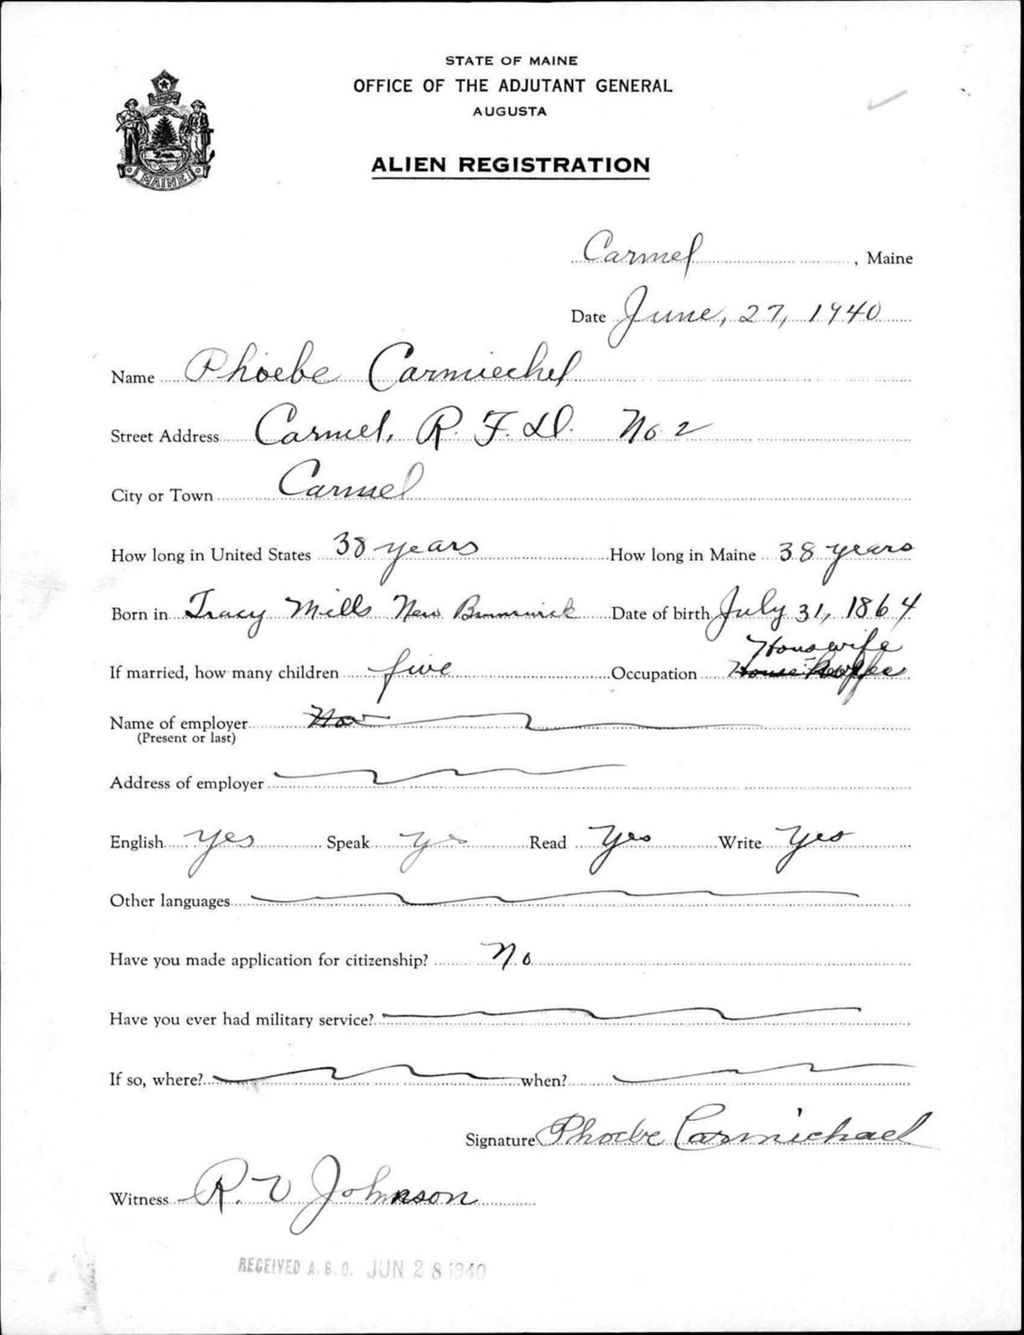 STATE OF MAINE
OFFICE OF THE ADJUTANT GENERAL
AUGUSTA
MAINE
ALIEN REGISTRATION
Carmel, Maine
Date June, 27, 1940
Name Phoebe Carmiechel
Street Address Carmel, R. F. D. No 2
City or Town Carmel
How long in United States 38 years How long in Maine 38 years
Born in Tracy Mills New Brunswick Date of birth July 31, 1864
Housewife
If married, how many children five Occupation House
Name of employer
(Present or last)
Address of employer
English yes Speak yes Read Yes Write Yes
Other languages
Have you made application for citizenship? No
Have you ever had military service?
If so, where? when?
Signature Phoebe Carmichael
Witness R. V Johnson
RECEIVED A. G. O. JUN 28 1940